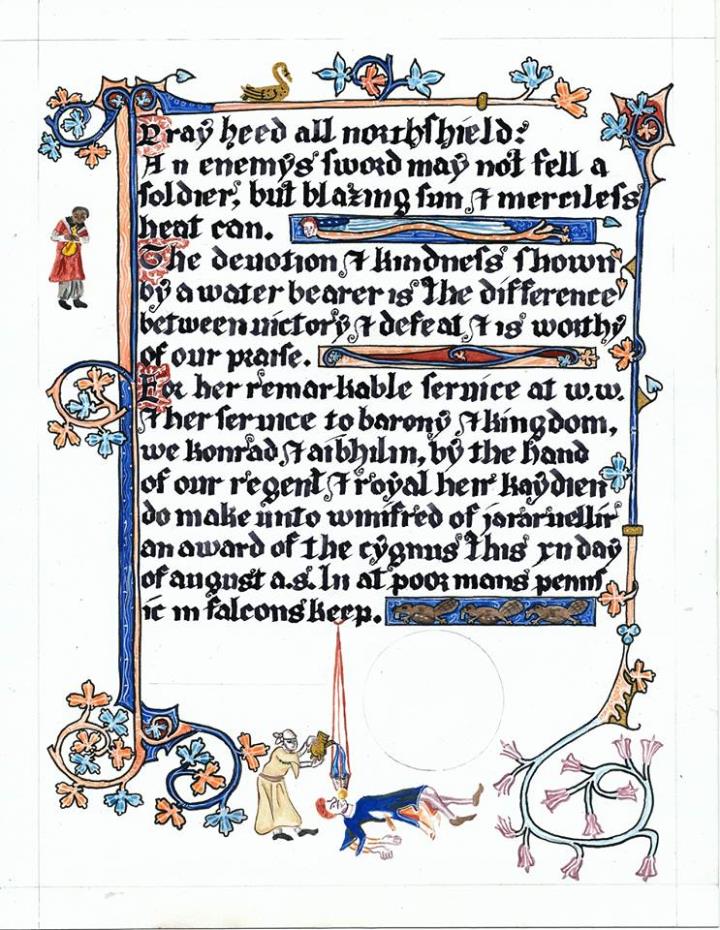 Pray heed all northshield:
An enemys sword may not fell a
soldier, but blazing sun & merciless
heat can.
The devotion & kindness shown
by a water bearer is the difference
between victory & defeat & is worthy
of our praise.
For her remarkable service at w.w.
& her service to barony & kingdom,
we konrad & aibhilin, by the hand
of our regent & royal heir kaydien
do make unto winifred of jararvellir
an award of the cygnus this xii day
of august a.s. lii at poor mans penns
ic in falcons keep.